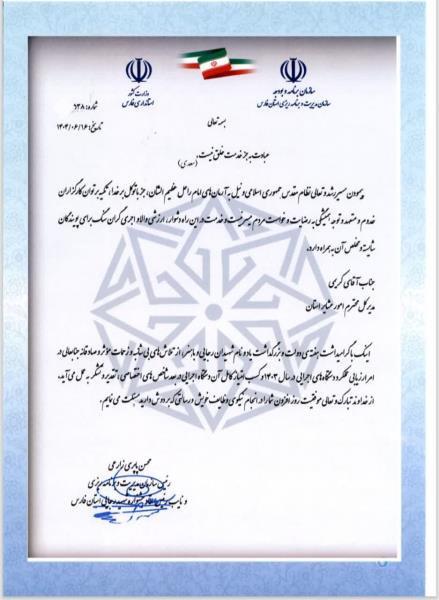 سازمان برنامه و بودجه
سازمان مدیریت و برنامه ریزی استان فارس
وزارت کشور
استانداری فارس
شماره: ۶۳۸
تاریخ: ۱۴۰۴/۰۶/۱۶
بسمه تعالی
عبادت به جز خدمت خلق نیست.
(سعدی)
پیمودن مسیر رشد و تعالی نظام مقدس جمهوری اسلامی و نیل به آرمان‌های امام راحل عظیم الشان، جز با توکل بر خدا، تکیه بر توان کارگزاران
خدوم و متعهد و توجه همیشگی به رضایت و خواست مردم میسر نیست و خدمت در این راه دشوار، ارزشی والا و اجری گران سنگ برای پویندگان
شایسته و مخلص آن به همراه دارد.
جناب آقای کریمی
مدیر کل محترم امور عشایر استان
اینک با گرامیداشت هفته‌ی دولت و بزرگداشت یاد و نام شهیدان رجایی و باهنر، از تلاش‌های بی شائبه و زحمات مؤثر و صادقانه جنابعالی در
امر ارزیابی عملکرد دستگاه‌های اجرایی در سال ۱۴۰۳ و کسب امتیاز کامل آن دستگاه اجرایی در بعد شاخص‌های اختصاصی، تقدیر و تشکر به عمل می‌آید.
از خداوند تبارک و تعالی موفقیت روز افزون شما را در انجام نیکوی وظایف خویش و رسالتی که بر دوش دارید مسئلت می نمایم.
محسن یاری زارعی
رئیس سازمان مدیریت و برنامه ریزی
و نایب رئیس جشنواره شهید رجایی استان فارس